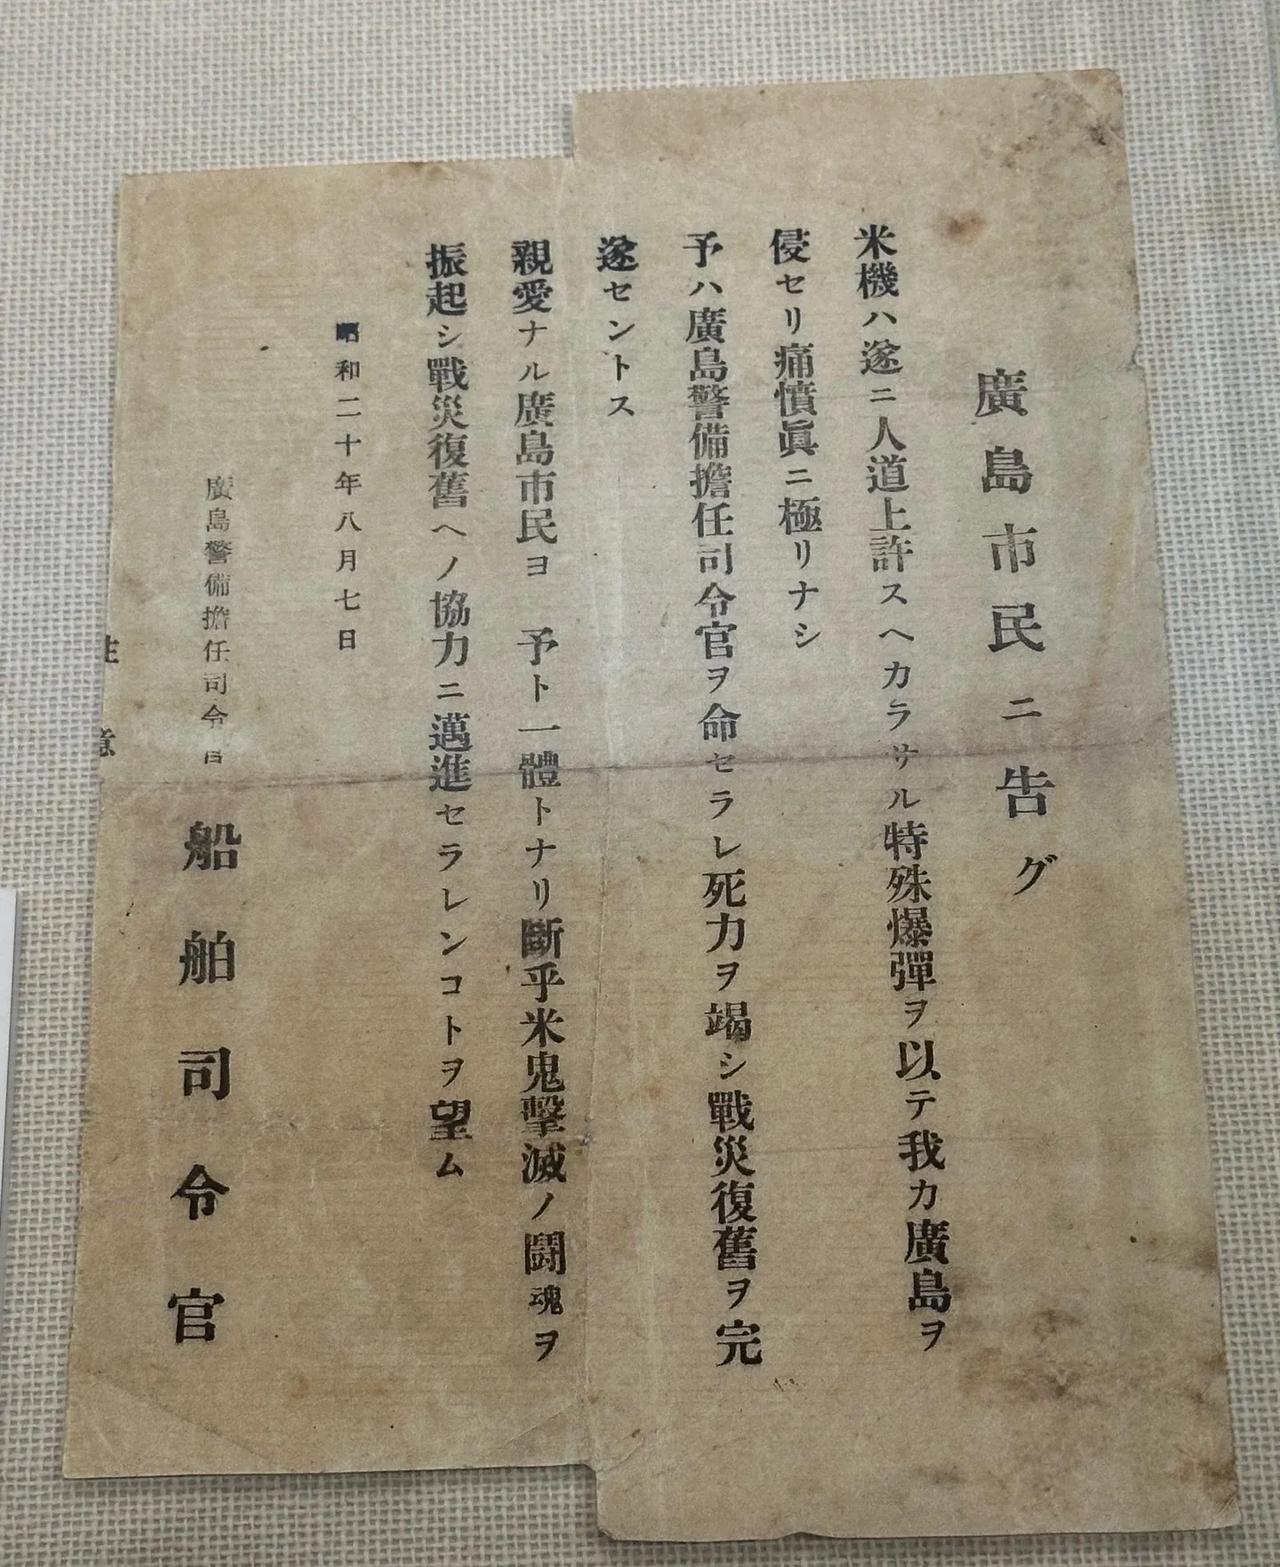 廣島市民ニ告グ
米機ハ遂ニ人道上許スヘカラサル特殊爆彈ヲ以テ我カ廣島ヲ
侵セリ痛憤眞ニ極リナシ
予ハ廣島警備擔任司令官ヲ命セラレ死力ヲ竭シ戰災復舊ヲ完
遂セントス
親愛ナル廣島市民ヨ　予ト一體トナリ斷乎米鬼擊滅ノ鬪魂ヲ
振起シ戰災復舊ヘノ協力ニ邁進セラレンコトヲ望ム
昭和二十年八月七日
廣島警備擔任司令官　船舶司令官
注意